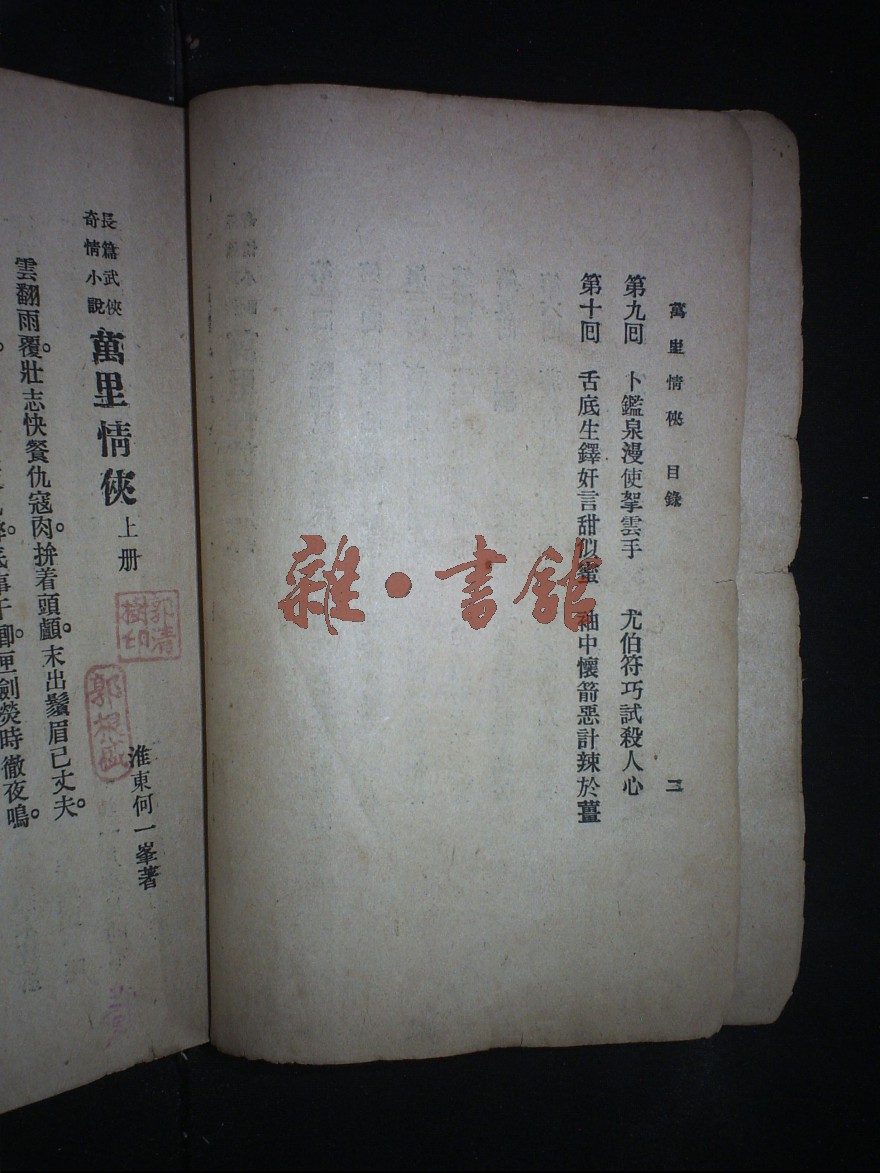 萬里情俠 目錄 二
第九回 卜鑑泉漫使拏雲手 尤伯符巧試殺人心
第十回 舌底生鐸奸言甜似蜜 袖中懷箭惡計辣於薑
雜·書館
長篇武俠
奇情小說
萬里情俠 上册
淮東何一峯著
郭清樹印
雲翻雨覆。壯志快餐仇寇肉。拚着頭顱。末出鬚眉已丈夫。
匣劍熒時徹夜鳴。